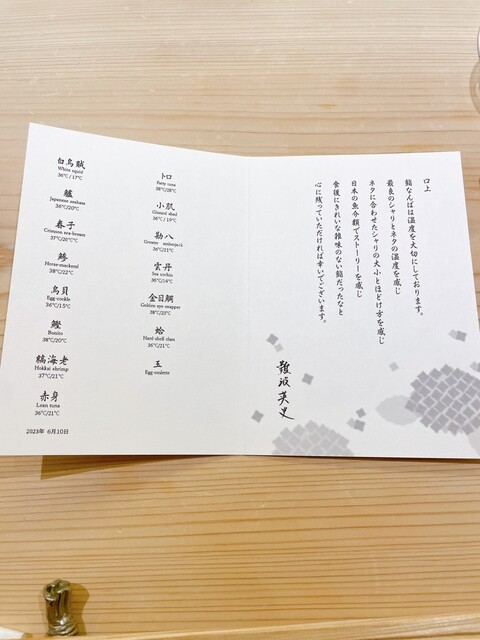 白烏賊
White squid
36℃ / 17℃
鱸
Japanese seabass
36℃/20℃
春子
Crimson sea-bream
37℃/20℃
鯵
Horse-mackerel
38℃/22℃
鳥貝
Egg-cockle
36℃/15℃
鰹
Bonito
38℃/20℃
縞海老
Hokkai shrimp
37℃/21℃
赤身
Lean tuna
36℃/21℃
2023年 6月10日
トロ
Fatty tuna
38℃/28℃
小肌
Gizzard shad
36℃ / 19℃
勘八
Greater amberjack
36℃/21℃
雲丹
Sea urchin
36℃/14℃
金目鯛
Golden eye snapper
38℃/23℃
蛤
Hard-shell clam
36℃/21℃
玉
Egg-omlette
口上
鮨なんばは温度を大切にしております。
最良のシャリとネタの温度を感じ
ネタに合わせたシャリの大小とほどけ方を感じ
日本の魚介類でストーリーを感じ
食後にきれいな雑味のない鮨だったなと
心に残っていただければ幸いでございます。
難波英史